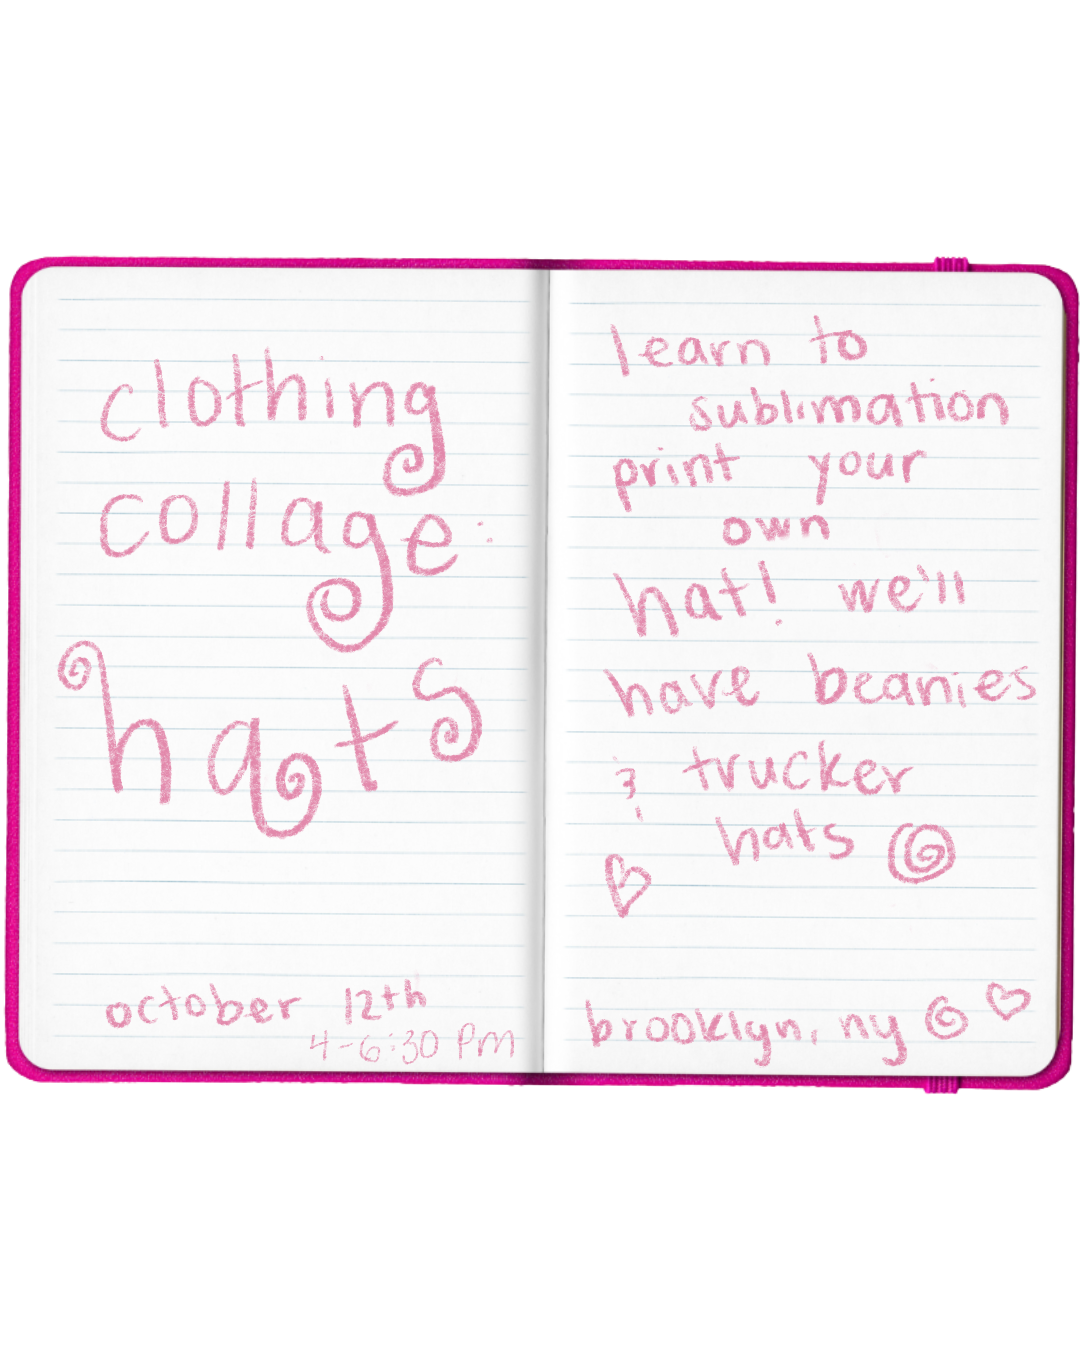 clothing
collage:
hats
october 12th
4-6:30 PM
learn to
sublimation
print your
own
hat! we'll
have beanies
& trucker
hats
brooklyn, ny